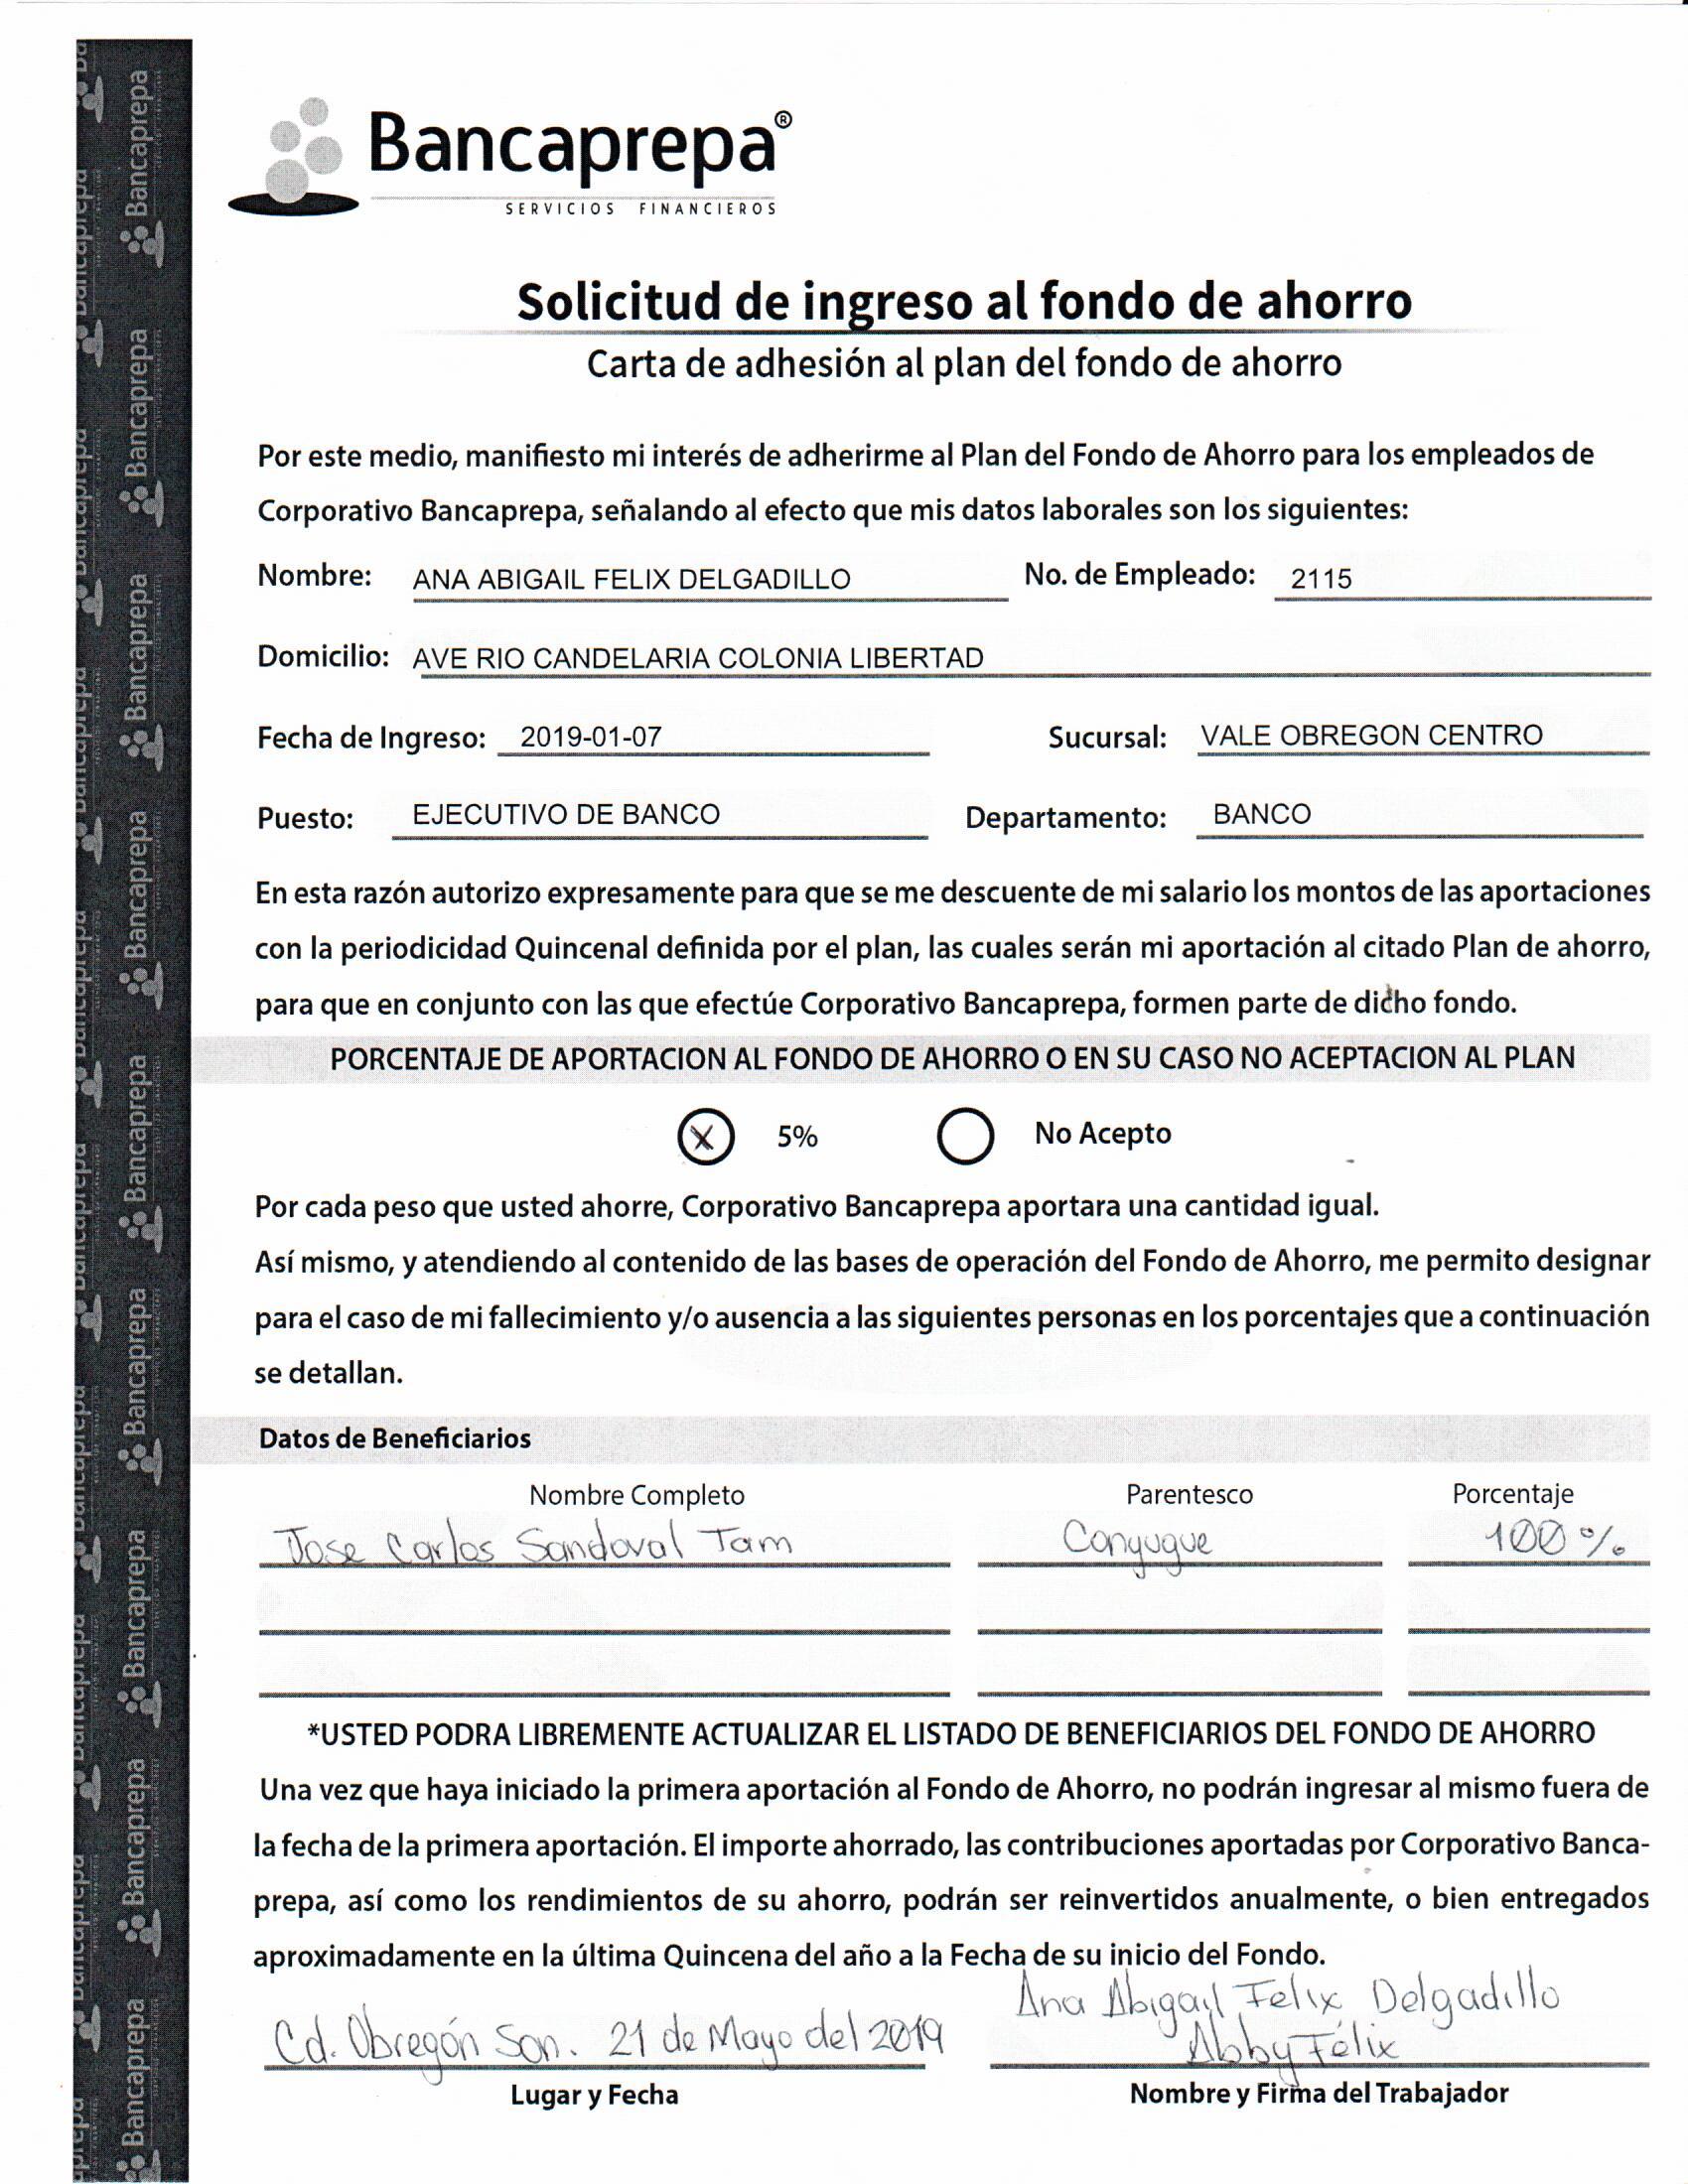 Bancaprepa®
SERVICIOS FINANCIEROS
Solicitud de ingreso al fondo de ahorro
Carta de adhesión al plan del fondo de ahorro
Por este medio, manifiesto mi interés de adherirme al Plan del Fondo de Ahorro para los empleados de
Corporativo Bancaprepa, señalando al efecto que mis datos laborales son los siguientes:
Nombre: ANA ABIGAIL FELIX DELGADILLO No. de Empleado: 2115
Domicilio: AVE RIO CANDELARIA COLONIA LIBERTAD
Fecha de Ingreso: 2019-01-07 Sucursal: VALE OBREGON CENTRO
Puesto: EJECUTIVO DE BANCO Departamento: BANCO
En esta razón autorizo expresamente para que se me descuente de mi salario los montos de las aportaciones
con la periodicidad Quincenal definida por el plan, las cuales serán mi aportación al citado Plan de ahorro,
para que en conjunto con las que efectúe Corporativo Bancaprepa, formen parte de dicho fondo.
PORCENTAJE DE APORTACION AL FONDO DE AHORRO O EN SU CASO NO ACEPTACION AL PLAN
X 5% No Acepto
Por cada peso que usted ahorre, Corporativo Bancaprepa aportara una cantidad igual.
Así mismo, y atendiendo al contenido de las bases de operación del Fondo de Ahorro, me permito designar
para el caso de mi fallecimiento y/o ausencia a las siguientes personas en los porcentajes que a continuación
se detallan.
Datos de Beneficiarios
Nombre Completo Parentesco Porcentaje
Jose Carlos Sandoval Tam Conyugue 100%
*USTED PODRA LIBREMENTE ACTUALIZAR EL LISTADO DE BENEFICIARIOS DEL FONDO DE AHORRO
Una vez que haya iniciado la primera aportación al Fondo de Ahorro, no podrán ingresar al mismo fuera de
la fecha de la primera aportación. El importe ahorrado, las contribuciones aportadas por Corporativo Banca-
prepa, así como los rendimientos de su ahorro, podrán ser reinvertidos anualmente, o bien entregados
aproximadamente en la última Quincena del año a la Fecha de su inicio del Fondo.
Ana Abigail Felix Delgadillo
Cd. Obregón Son. 21 de Mayo del 2019 Abby Félix
Lugar y Fecha Nombre y Firma del Trabajador